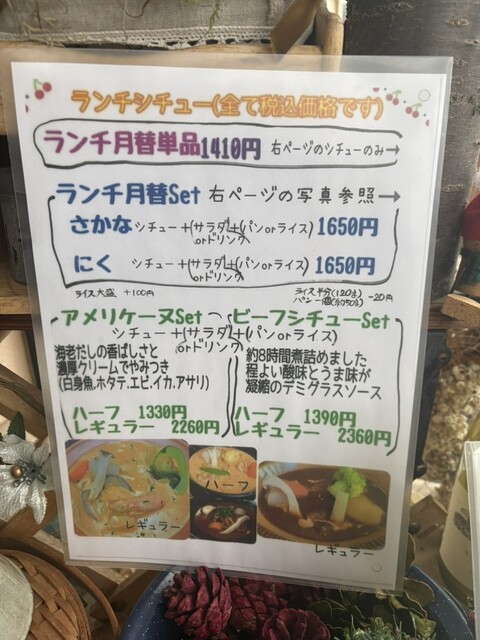 ランチシチュー(全て税込価格です)
ランチ月替単品1410円 右ページのシチューのみ→
ランチ月替Set 右ページの写真参照→
さかな シチュー+(サラダ)+(パンorライス) 1650円
orドリンク
にく シチュー+(サラダ)+(パンorライス) 1650円
orドリンク
ライス大盛 +100円
ライス半分(120g)
-20円
アメリケーヌSet ビーフシチューSet
シチュー+(サラダ)+(パンorライス)
orドリンク
海老だしの香ばしさと
濃厚クリームでやみつき
(白身魚,ホタテ,エビ,イカ,アサリ)
ハーフ 1330円
レギュラー 2260円
約8時間煮詰めました
程よい酸味とうま味が
凝縮のデミグラスソース
ハーフ 1390円
レギュラー 2360円
ハーフ
レギュラー
レギュラー